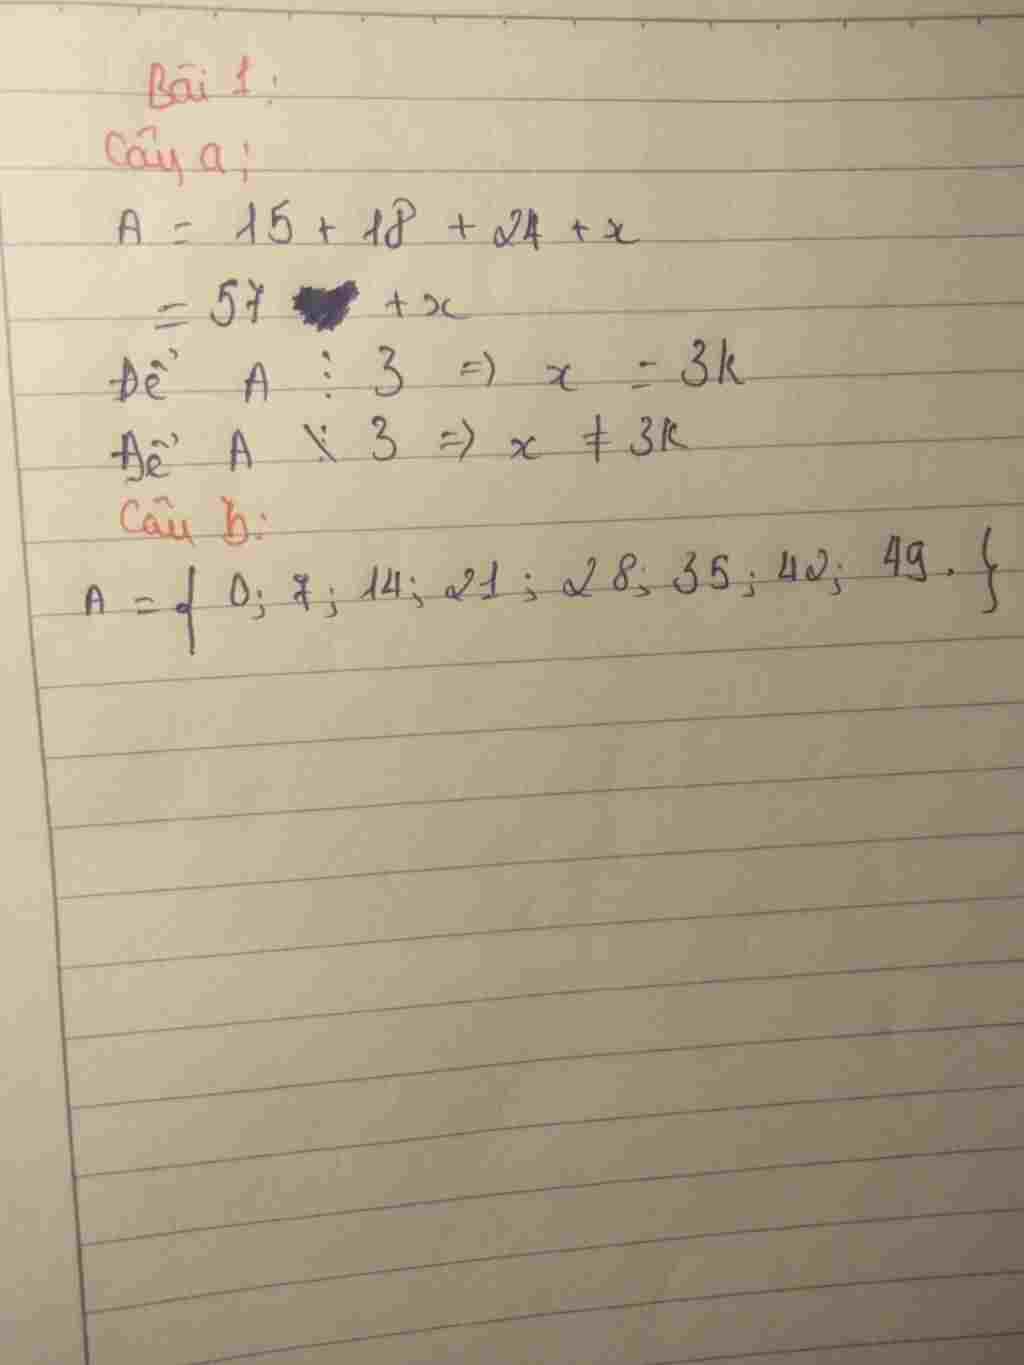 Bài 1:
Câu a;
A = 15 + 18 + 24 + x
= 57 + x
Để A ⋮ 3 => x = 3k
Để A ⋮̸ 3 => x ≠ 3k
Câu b:
A = { 0; 7; 14; 21; 28; 35; 42; 49. }